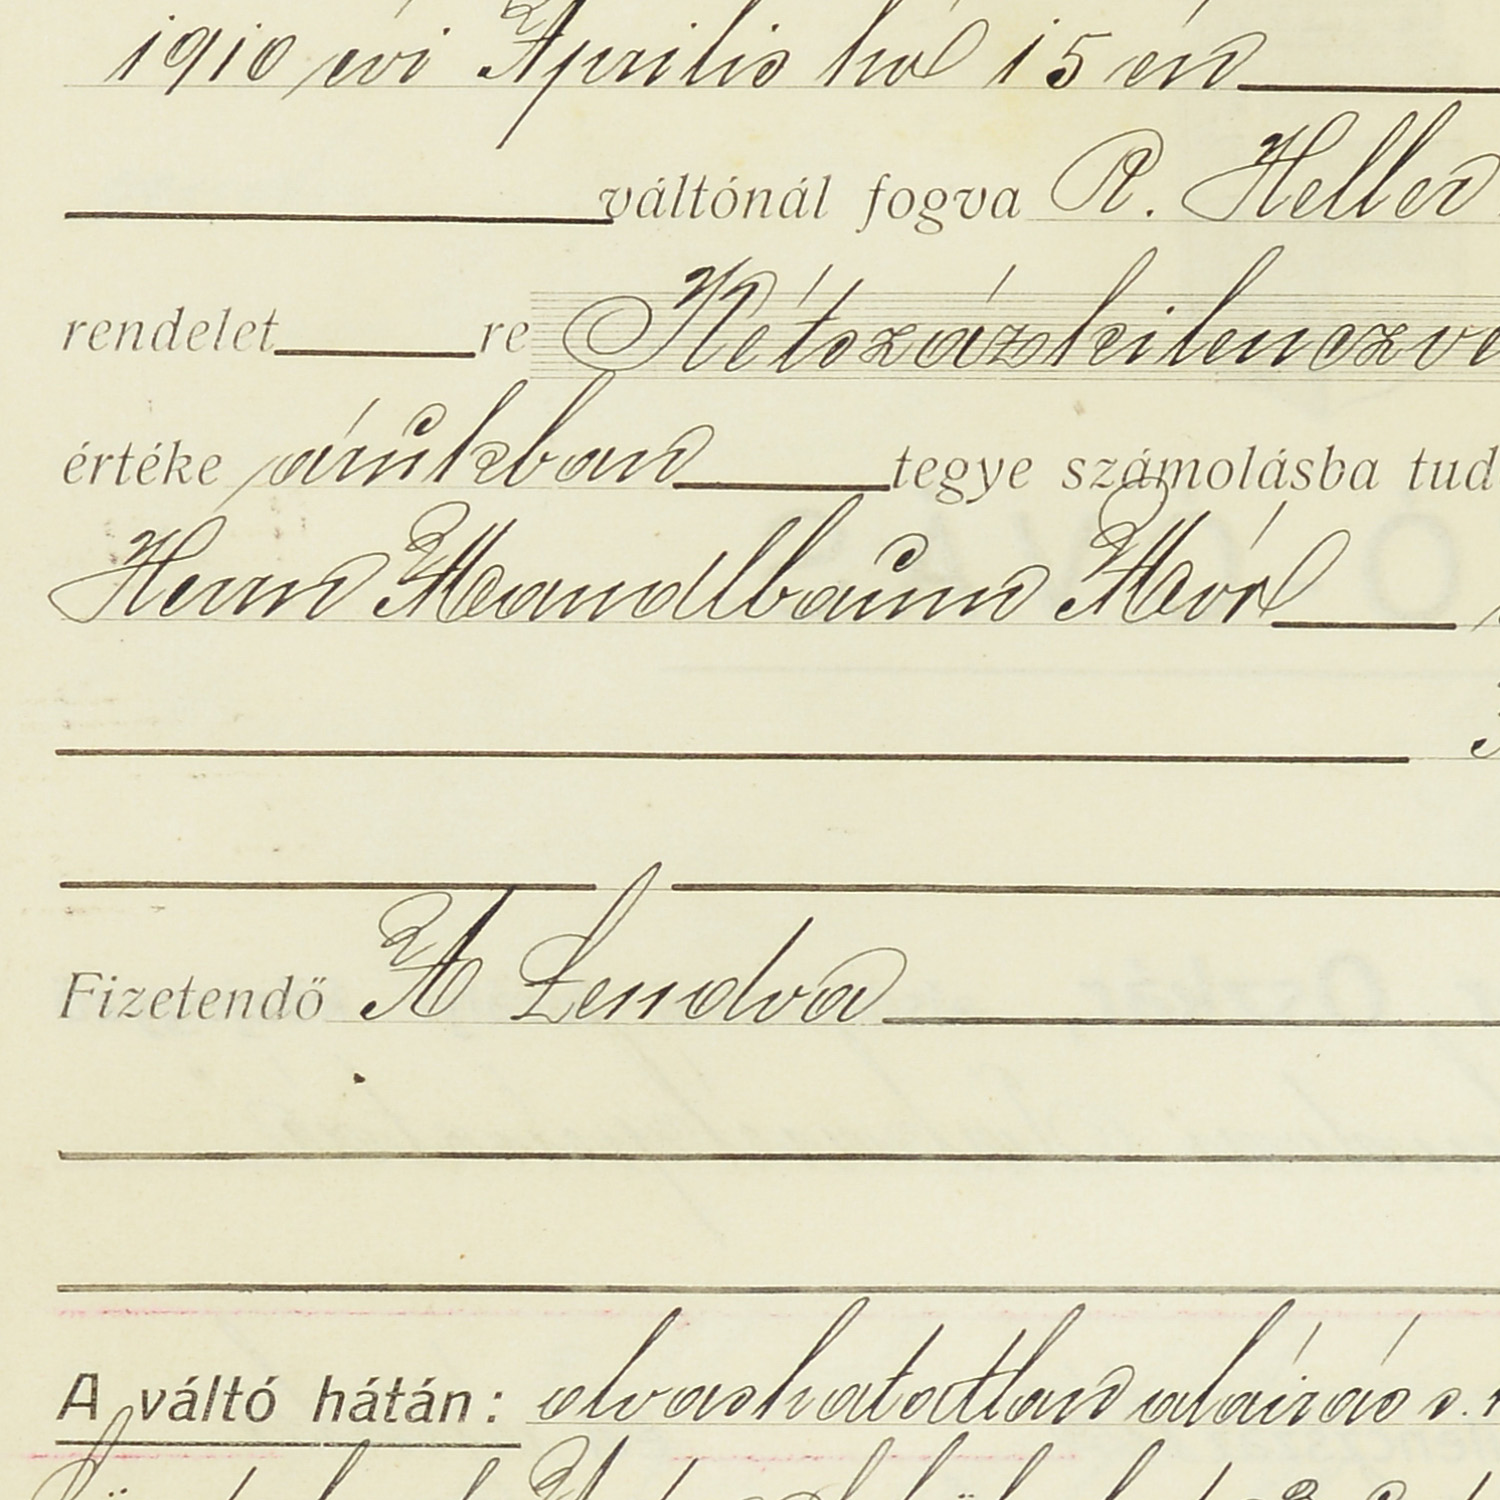 1910 évi Április hó 15 én
váltónál fogva R. Heller
rendelet re Kétszázkilenczve
értéke árúkban tegye számolásba tud
Herrn Mandlbaum Mór
Fizetendő A Lendva
A váltó hátán: olvashatatlan aláirás s.